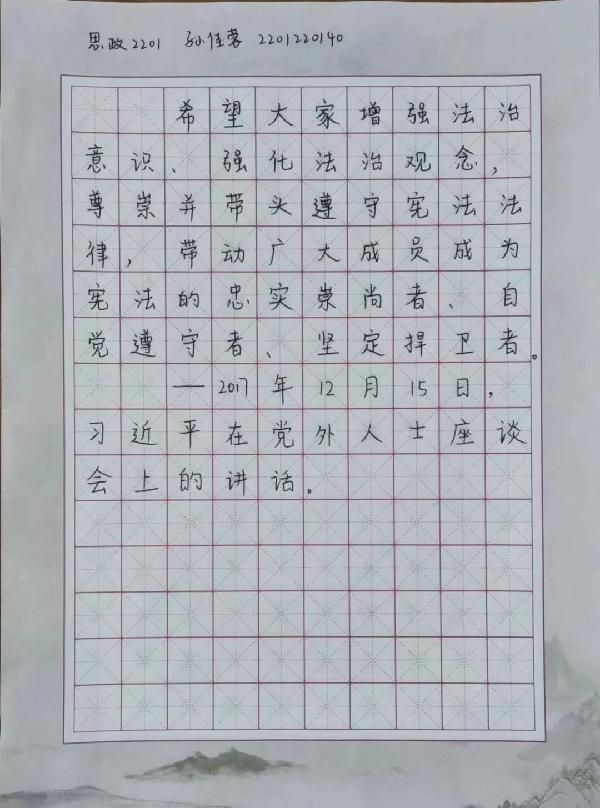 思政2201 孙佳蓉 2201220140
希望大家增强法治
意识、强化法治观念,
尊崇并带头遵守宪法法
律,带动广大成员成为
宪法的忠实崇尚者、自
觉遵守者、坚定捍卫者。
——2017年12月15日,
习近平在党外人士座谈
会上的讲话。